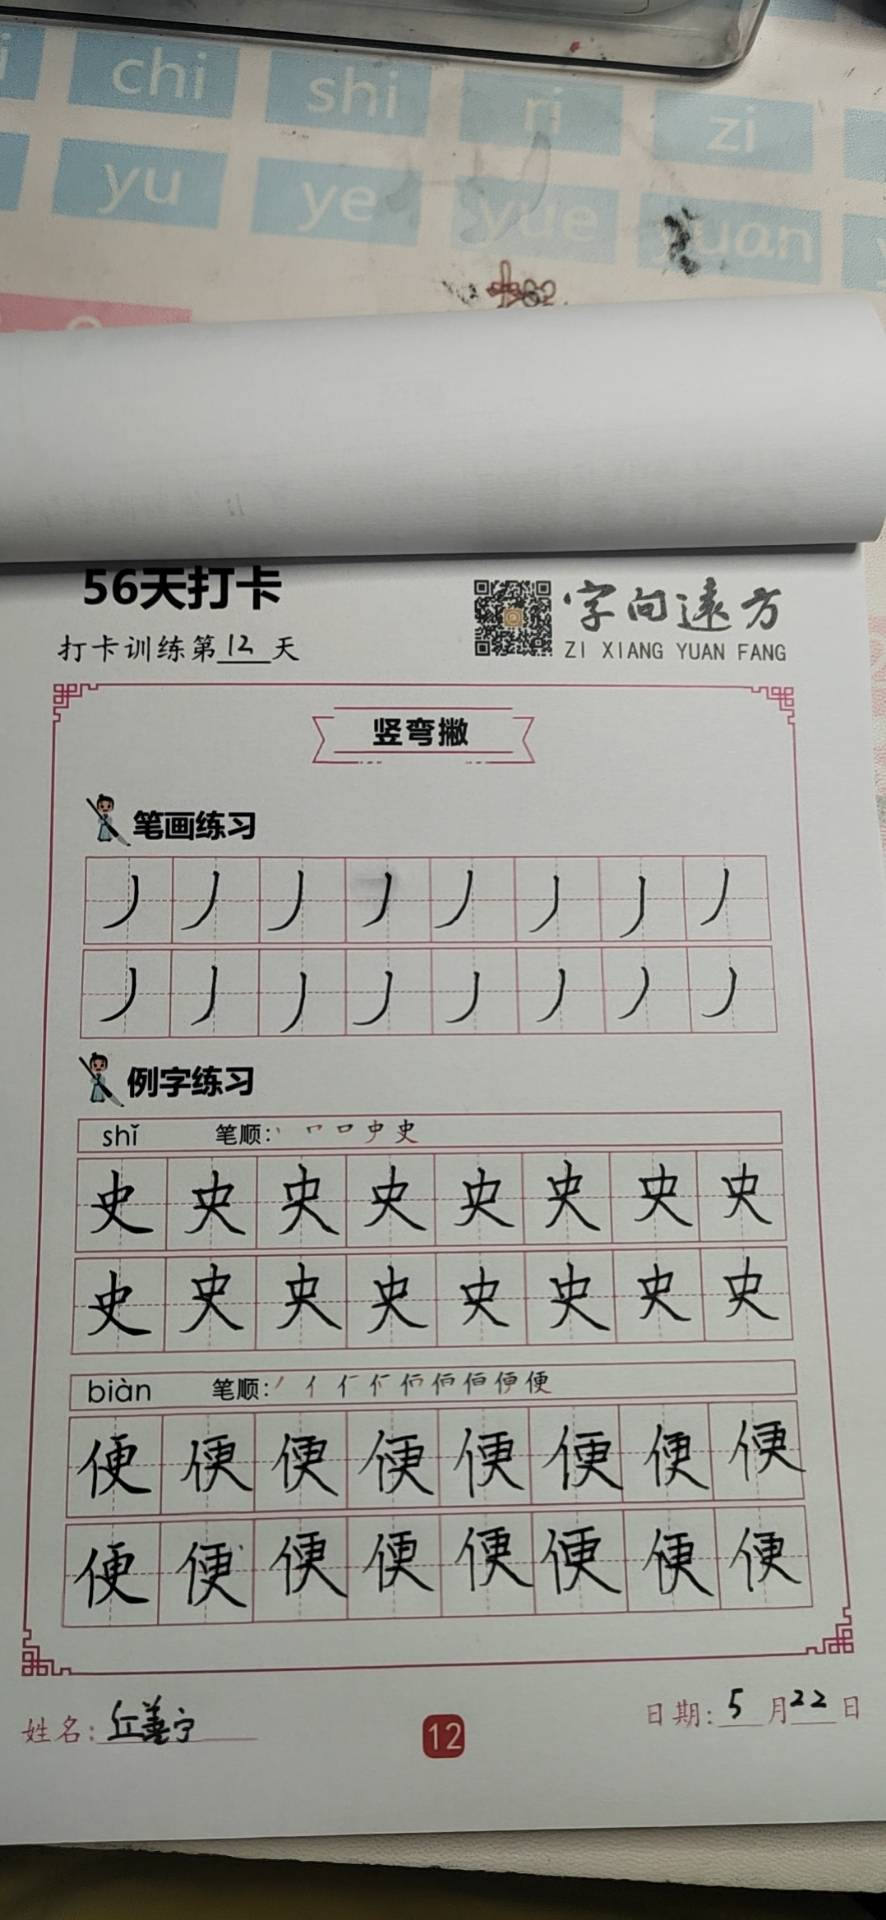 chi shi ri zi
yu ye yue yuan
56天打卡
打卡训练第12天
字向遠方
ZI XIANG YUAN FANG
竖弯撇
笔画练习
例字练习
shǐ 笔顺: 史
史 史 史 史 史 史 史 史
史 史 史 史 史 史 史 史
biàn 笔顺: 便
便 便 便 便 便 便 便 便
便 便 便 便 便 便 便 便
姓名: 丘善宁
12
日期: 5月22日